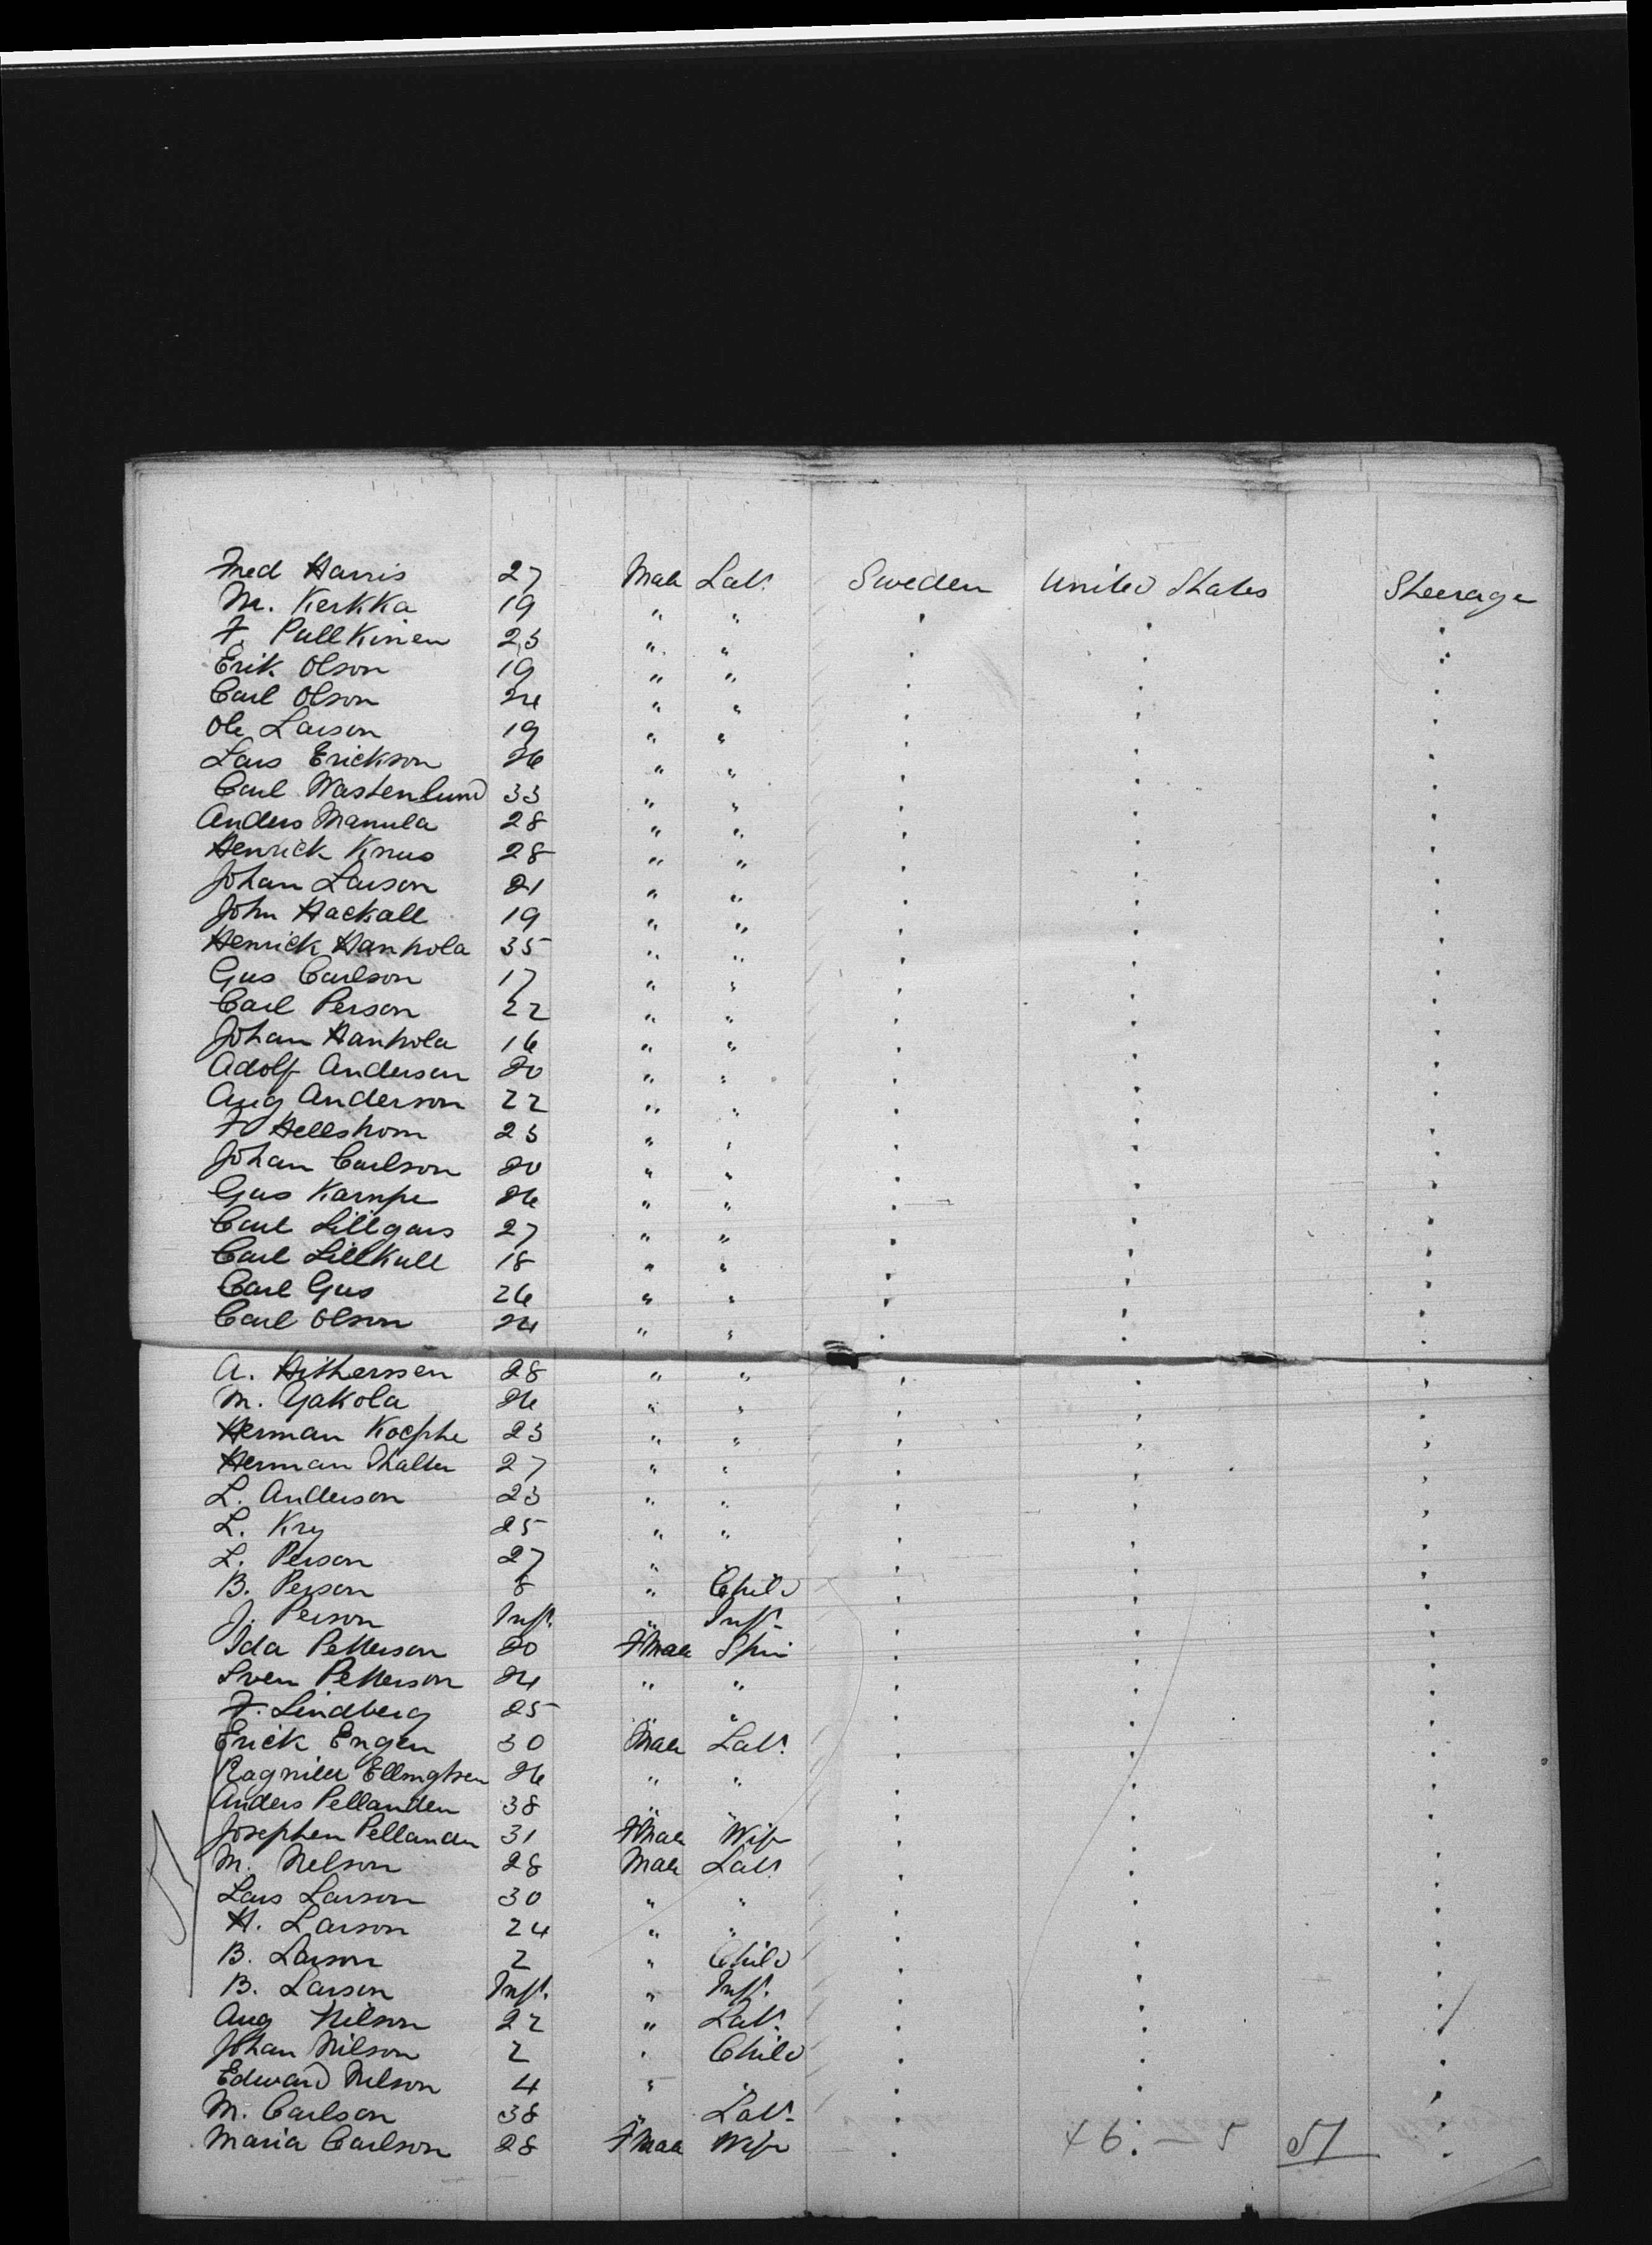 Fred Harris 27 Male Labr. Sweden United States Steerage
M. Kerkka 19 " " " " "
F. Pullkinen 23 " " " " "
Erik Olson 19 " " " " "
Carl Olson 24 " " " " "
Ole Larson 19 " " " " "
Lars Erickson 26 " " " " "
Carl Wastenlund 33 " " " " "
Anders Manula 28 " " " " "
Henrick Knus 28 " " " " "
Johan Larson 21 " " " " "
John Hackall 19 " " " " "
Henrick Hanhola 35 " " " " "
Gus Carlson 17 " " " " "
Carl Person 22 " " " " "
Johan Hanhola 16 " " " " "
Adolf Anderson 20 " " " " "
Aug Anderson 22 " " " " "
F Hellstrom 23 " " " " "
Johan Carlson 20 " " " " "
Gus Kampe 26 " " " " "
Carl Lillgars 27 " " " " "
Carl Lillkull 18 " " " " "
Carl Gus 26 " " " " "
Carl Olson 24 " " " " "
A. Hitherssen 28 " " " " "
M. Yakola 26 " " " " "
Herman Koephe 23 " " " " "
Herman Thalter 27 " " " " "
L. Anderson 23 " " " " "
L. Kry 25 " " " " "
L. Person 27 " " " "
B. Person 8 " Child " " "
J. Person Inft. " Inft. " " "
Ida Petterson 20 FMale Spin " " "
Sven Petterson 24 " " " " "
F. Lindberg 25 " " " " "
Erick Engen 30 Male Labr. " " "
Ragniler Ellingtsen 26 " " " " "
Anders Pellanden 38 " " " " "
Josephen Pellanden 31 FMale Wife " " "
M. Nelson 28 Male Labr " " "
Lars Larson 30 " " " " "
H. Larson 24 " " " " "
B. Larson 2 " Child " " "
B. Larson Inft. " Inft. " " "
Aug Nilson 22 " Labr. " " "
Johan Nilson 2 " Child " " "
Edward Nelson 4 " " " " "
M. Carlson 38 " Labr. " " "
Maria Carlson 28 FMale Wife " " "
46 – 5 51